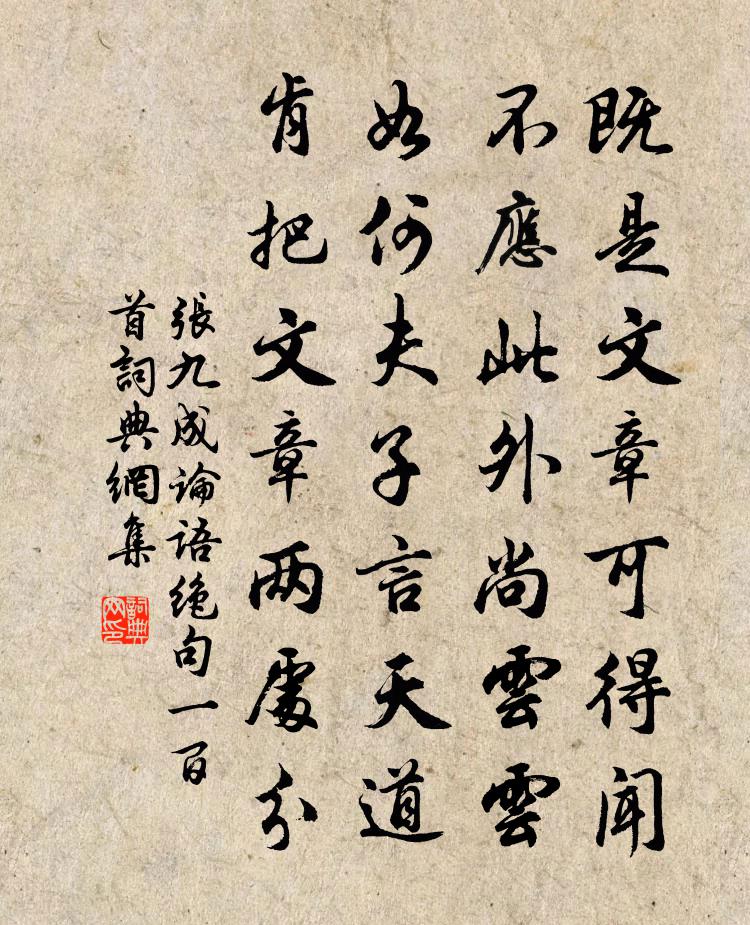 既是文章可得聞
不應此外尚雲雲
如何夫子言天道
肯把文章両處分
張九成論語絶句一百
首詞典網集
詞典
网印